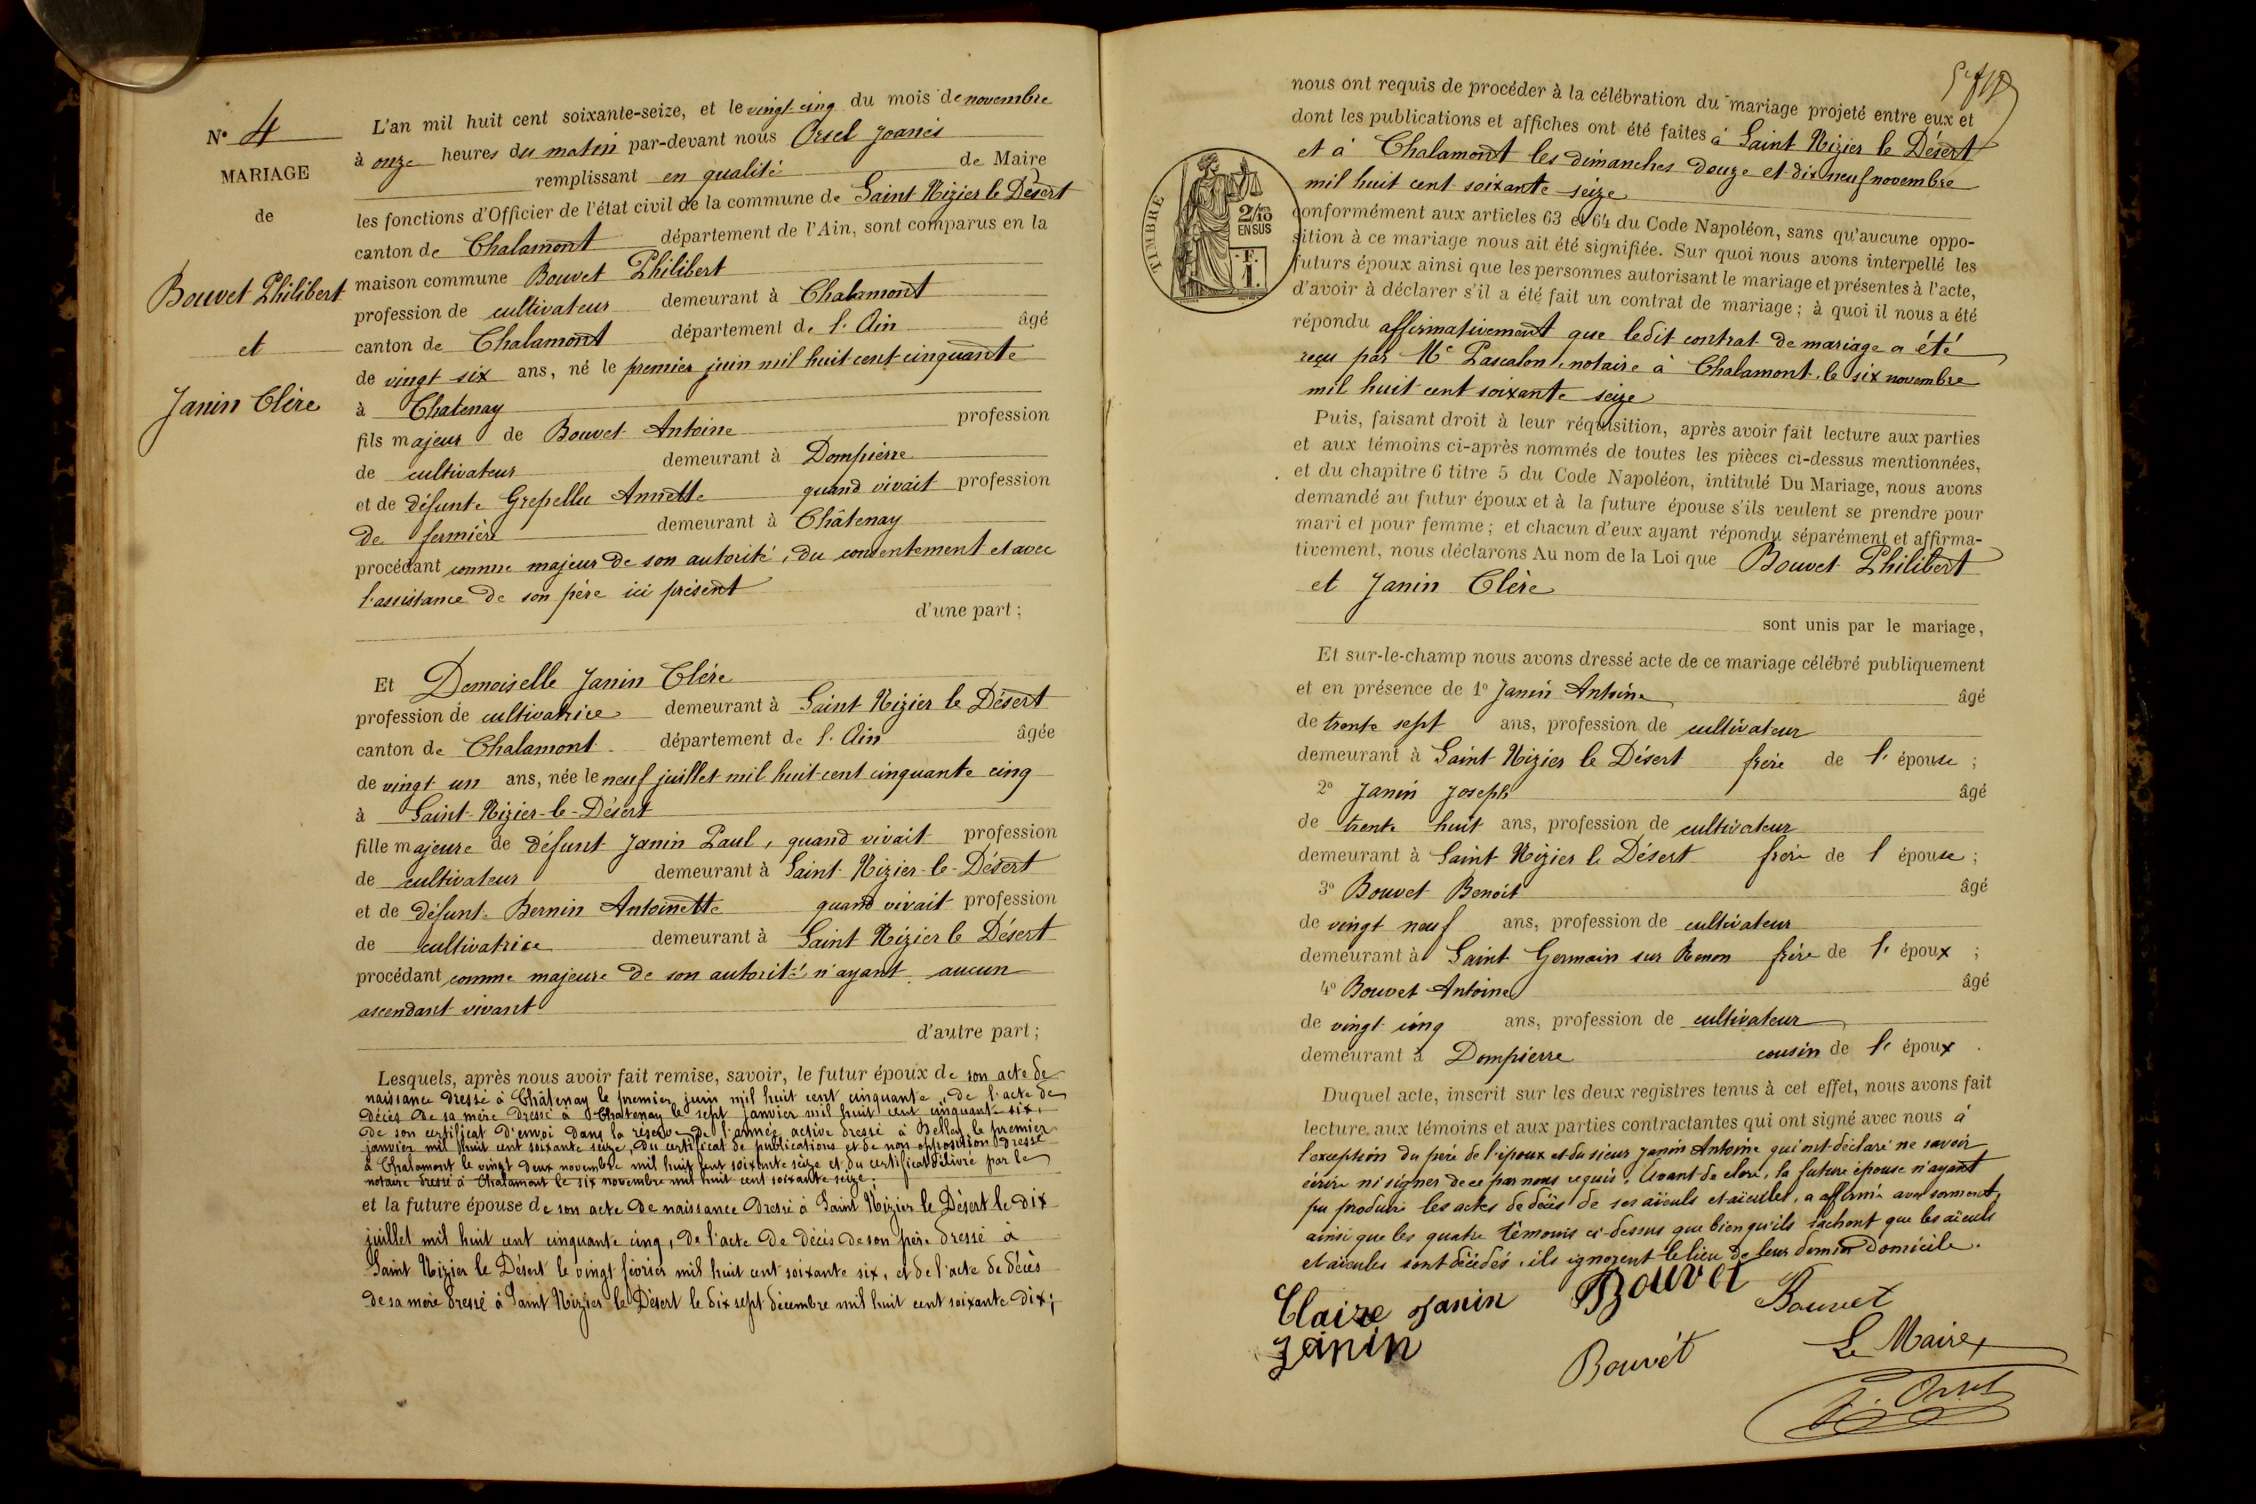 N° 4
MARIAGE
de
Bouvet Philibert
et
Janin Clère
L'an mil huit cent soixante-seize, et le vingt cinq du mois de novembre
à onze heures du matin par-devant nous Orsel Joanès
remplissant en qualité de Maire
les fonctions d'Officier de l'état civil de la commune de Saint Nizier le Désert
canton de Chalamont département de l'Ain, sont comparus en la
maison commune Bouvet Philibert
profession de cultivateur demeurant à Chalamont
canton de Chalamont département de l'Ain âgé
de vingt six ans, né le premier juin mil huit cent cinquante
à Chatenay
fils majeur de Bouvet Antoine profession
de cultivateur demeurant à Dompierre
et de défunte Grepellu Annette quand vivait profession
de fermière demeurant à Châtenay
procédant comme majeur de son autorité, du consentement et avec
l'assistance de son père ici présent
d'une part ;
Et Demoiselle Janin Clère
profession de cultivatrice demeurant à Saint Nizier le Désert
canton de Chalamont département de l'Ain âgée
de vingt un ans, née le neuf juillet mil huit cent cinquante cinq
à Saint-Nizier-le-Désert
fille majeure de défunt Janin Paul, quand vivait profession
de cultivateur demeurant à Saint-Nizier-le-Désert
et de défunte Bernin Antoinette quand vivait profession
de cultivatrice demeurant à Saint Nizier le Désert
procédant comme majeure de son autorité n'ayant aucun
ascendant vivant
d'autre part ;
Lesquels, après nous avoir fait remise, savoir, le futur époux de son acte de
naissance dressé à Châtenay le premier juin mil huit cent cinquante, de l'acte de
décès de sa mère dressé à Chatenay le sept janvier mil huit cent cinquante six,
de son certificat d'envoi dans la réserve de l'armée active dressé à Belley le premier
janvier mil huit cent soixante seize, du certificat de publications et de non opposition dressé
à Chalamont le vingt deux novembre mil huit cent soixante seize et du certificat délivré par le
notaire dressé à Chalamont le six novembre mil huit cent soixante seize ;
et la future épouse de son acte de naissance dressé à Saint Nizier le Désert le dix
juillet mil huit cent cinquante cinq, de l'acte de décès de son père dressé à
Saint Nizier le Désert le vingt février mil huit cent soixante six, et de l'acte de décès
de sa mère dressé à Saint Nizier le Désert le dix sept décembre mil huit cent soixante dix ;
nous ont requis de procéder à la célébration du mariage projeté entre eux et
dont les publications et affiches ont été faites à Saint Nizier le Désert
et à Chalamont les dimanches douze et dix neuf novembre
mil huit cent soixante seize
TIMBRE
2/10
EN SUS
F.
1.
conformément aux articles 63 et 64 du Code Napoléon, sans qu'aucune oppo-
sition à ce mariage nous ait été signifiée. Sur quoi nous avons interpellé les
futurs époux ainsi que les personnes autorisant le mariage et présentes à l'acte,
d'avoir à déclarer s'il a été fait un contrat de mariage ; à quoi il nous a été
répondu affirmativement que ledit contrat de mariage a été
reçu par Me Pascalon, notaire à Chalamont, le six novembre
mil huit cent soixante seize
Puis, faisant droit à leur réquisition, après avoir fait lecture aux parties
et aux témoins ci-après nommés de toutes les pièces ci-dessus mentionnées,
et du chapitre 6 titre 5 du Code Napoléon, intitulé Du Mariage, nous avons
demandé au futur époux et à la future épouse s'ils veulent se prendre pour
mari et pour femme ; et chacun d'eux ayant répondu séparément et affirma-
tivement, nous déclarons Au nom de la Loi que Bouvet Philibert
et Janin Clère
sont unis par le mariage,
Et sur-le-champ nous avons dressé acte de ce mariage célébré publiquement
et en présence de 1° Janin Antoine âgé
de trente sept ans, profession de cultivateur
demeurant à Saint Nizier le Désert frère de l'épouse ;
2° Janin Joseph âgé
de trente huit ans, profession de cultivateur
demeurant à Saint Nizier le Désert frère de l'épouse ;
3° Bouvet Benoît âgé
de vingt neuf ans, profession de cultivateur
demeurant à Saint Germain sur Renon frère de l'époux ;
4° Bouvet Antoine âgé
de vingt cinq ans, profession de cultivateur
demeurant à Dompierre cousin de l'époux .
Duquel acte, inscrit sur les deux registres tenus à cet effet, nous avons fait
lecture aux témoins et aux parties contractantes qui ont signé avec nous à
l'exception du père de l'époux et du sieur Janin Antoine qui ont déclaré ne savoir
écrire ni signer de ce par nous requis. Avant de clore, la future épouse n'ayant
pu produire les actes de décès de ses aïeuls et aïeules, a affirmé avec serment,
ainsi que les quatre témoins ci-dessus que bien qu'ils sachent que les aïeuls
et aïeules sont décédés, ils ignorent le lieu de leur dernier domicile.
Claire Janin Bouvet Bouvet
Janin Bouvét Le Maire,
J. Orsel